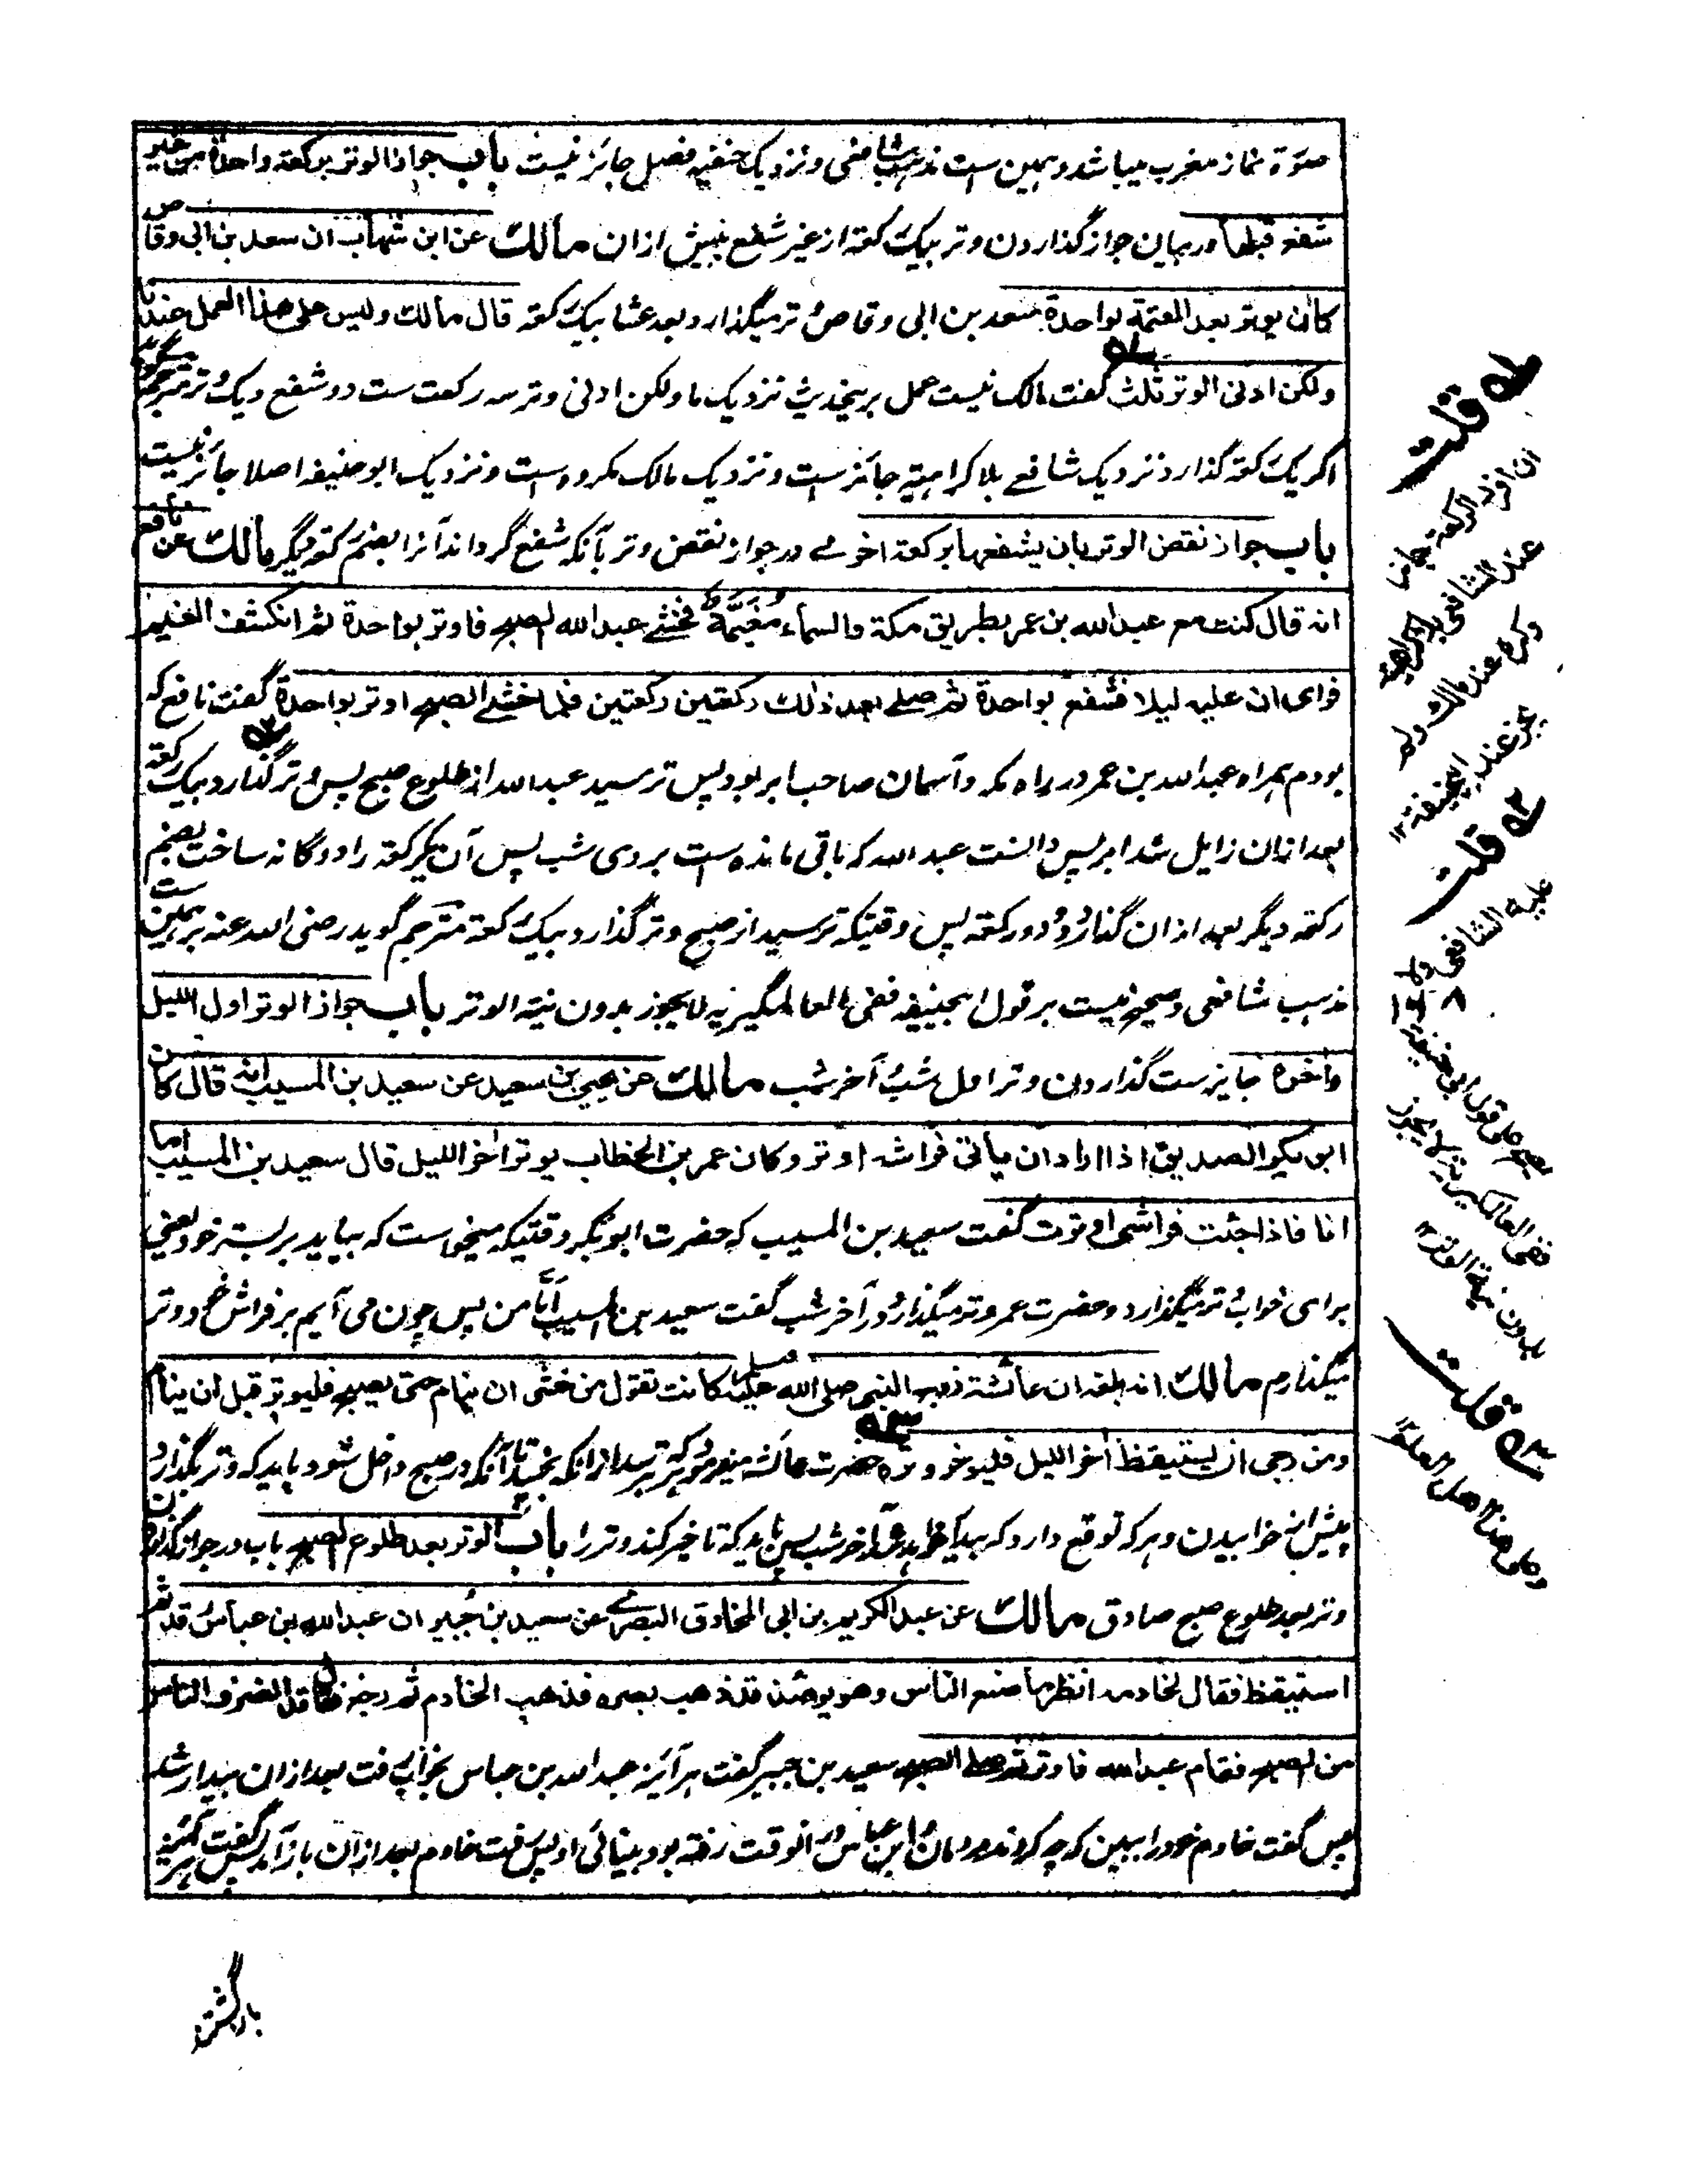 صوٓرة نماز مغرب میباشد و همین ست مذهب شافعی و نزدیک حنفیه فصل جائز نیست باب جواز الوتر برکعة واحدة من غیر
شفع قبلها در بیان جواز گذاردن وتر بیک رکعة از غیر شفع پیش ازان مالک عن ابن شهاب ان سعد بن ابی وقاص
کان یوتر بعد العتمة بواحدة سعد بن ابی وقاص وتر میگذارد بعد عشا بیک رکعة قال مالک ولیس علی هذا العمل عندنا
ولکن ادنی الوتر ثلث گفت مالک نیست عمل برینحدیث نزدیک ما ولکن ادنی وتر سه رکعت ست دو شفع و یک وتر مترجم میگوید
اگر یک رکعة گذارد نزدیک شافعے بلا کراهیة جائز ست و نزدیک مالک مکروه ست و نزدیک ابو حنیفه اصلا جائز نیست
باب جواز نقض الوتر بان یشفعها برکعة اخرے در جواز نقض وتر بآنکه شفع گرداند آنرا بضم رکعة دیگر مالک عن نافع
انه قال کنت مع عبد الله بن عمر بطریق مکة والسماء مُغَیِّمَةٌ فخشے عبد الله الصبح فاوتر بواحدة ثم انکشف الغیم
فرای ان علیه لیلا فشفع بواحدة ثم صلے بعد ذلک رکعتین رکعتین فلما خشے الصبح اوتر بواحدة گفت نافع که
بودم همراه عبد الله بن عمر در راه مکه و آسمان صاحب ابر بود پس ترسید عبد الله از طلوع صبح پس وتر گذارد بیک رکعة
بعد ازان زایل شد ابر پس دانست عبد الله که باقی مانده ست بر وی شب پس آن یک رکعة را دوگانه ساخت بضم
رکعة دیگر بعد ازان گذارد دو دو رکعة پس وقتیکه ترسید از صبح وتر گذارد بیک رکعة مترجم گوید رضی الله عنه برین ست
مذهب شافعی و صحیح نیست بر قول ابیحنیفه ففی العالمگیریه لا یجوز بدون نیة الوتر باب جواز الوتر اول اللیل
واخره جایز ست گذاردن وتر اول شب و آخر شب مالک عن یحیی بن سعید عن سعید بن المسیب انه قال کان
ابو بکر الصدیق اذا اراد ان یأتی فراشه اوتر وکان عمر بن الخطاب یوتر اخر اللیل قال سعید بن المسیب اما
انا فاذا جئت فراشی اوترت گفت سعید بن المسیب که حضرت ابوبکر وقتیکه میخواست که بیاید بر بستر خود یعنی
برای خواب وتر میگذارد و حضرت عمر وتر میگذارد در آخر شب گفت سعید بن المسیب امّا من پس چون می آیم بر فراش خود وتر
میگذارم مالک انه بلغه ان عائشة زوج النبی صلی الله علیه وسلم کانت تقول من خشی ان ینام حتی یصبح فلیوتر قبل ان ینام
ومن رجی ان یستیقظ اخر اللیل فلیوخر وتره حضرت عائشه میفرمود که هر که ترسد ازانکه بخسپد تا آنکه در صبح داخل شود باید که وتر بگذارد
پیش از خوابیدن و هر که توقع دارد که بیدار خواهد شد آخر شب پس باید که تاخیر کند وتر را باب الوتر بعد طلوع الصبح باب در جواز گذاردن
وتر بعد طلوع صبح صادق مالک عن عبد الکریم بن ابی المخارق البصرے عن سعید بن جبیر ان عبد الله بن عباس رقد ثم
استیقظ فقال لخادمه انظر ما صنع الناس وهو یومئذ قد ذهب بصره فذهب الخادم ثم رجع فقال قد انصرف الناس
من الصبح فقام عبد الله فاوتر ثم صلے الصبح سعید بن جبیر گفت هر آئینه عبد الله بن عباس بخواب رفت بعد ازان بیدار شد
پس گفت خادم خود را ببین که چه کردند مردمان و ابن عباس در انوقت رفته بود بینائی او پس رفت خادم بعد ازان باز آمد پس گفت هر آئینه
بازگشتند
سله قلت
ان افرد الرکعة جاز
عند الشافعی بلا کراهیة
وکره عند مالک ولم
یجز عند ابی حنیفة ۱۲
سله قلت
علیه الشافعی ولا
یصح علی قول ابی حنیفة
ففی العالمگیریة لا یجوز
بدون نیة الوتر ۱۲
سله قلت
وعلی هذا اهل العلم ۱۲